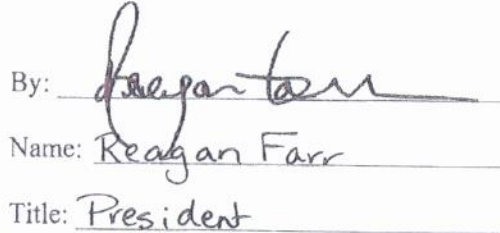 By: Reagan Farr
Name: Reagan Farr
Title: President